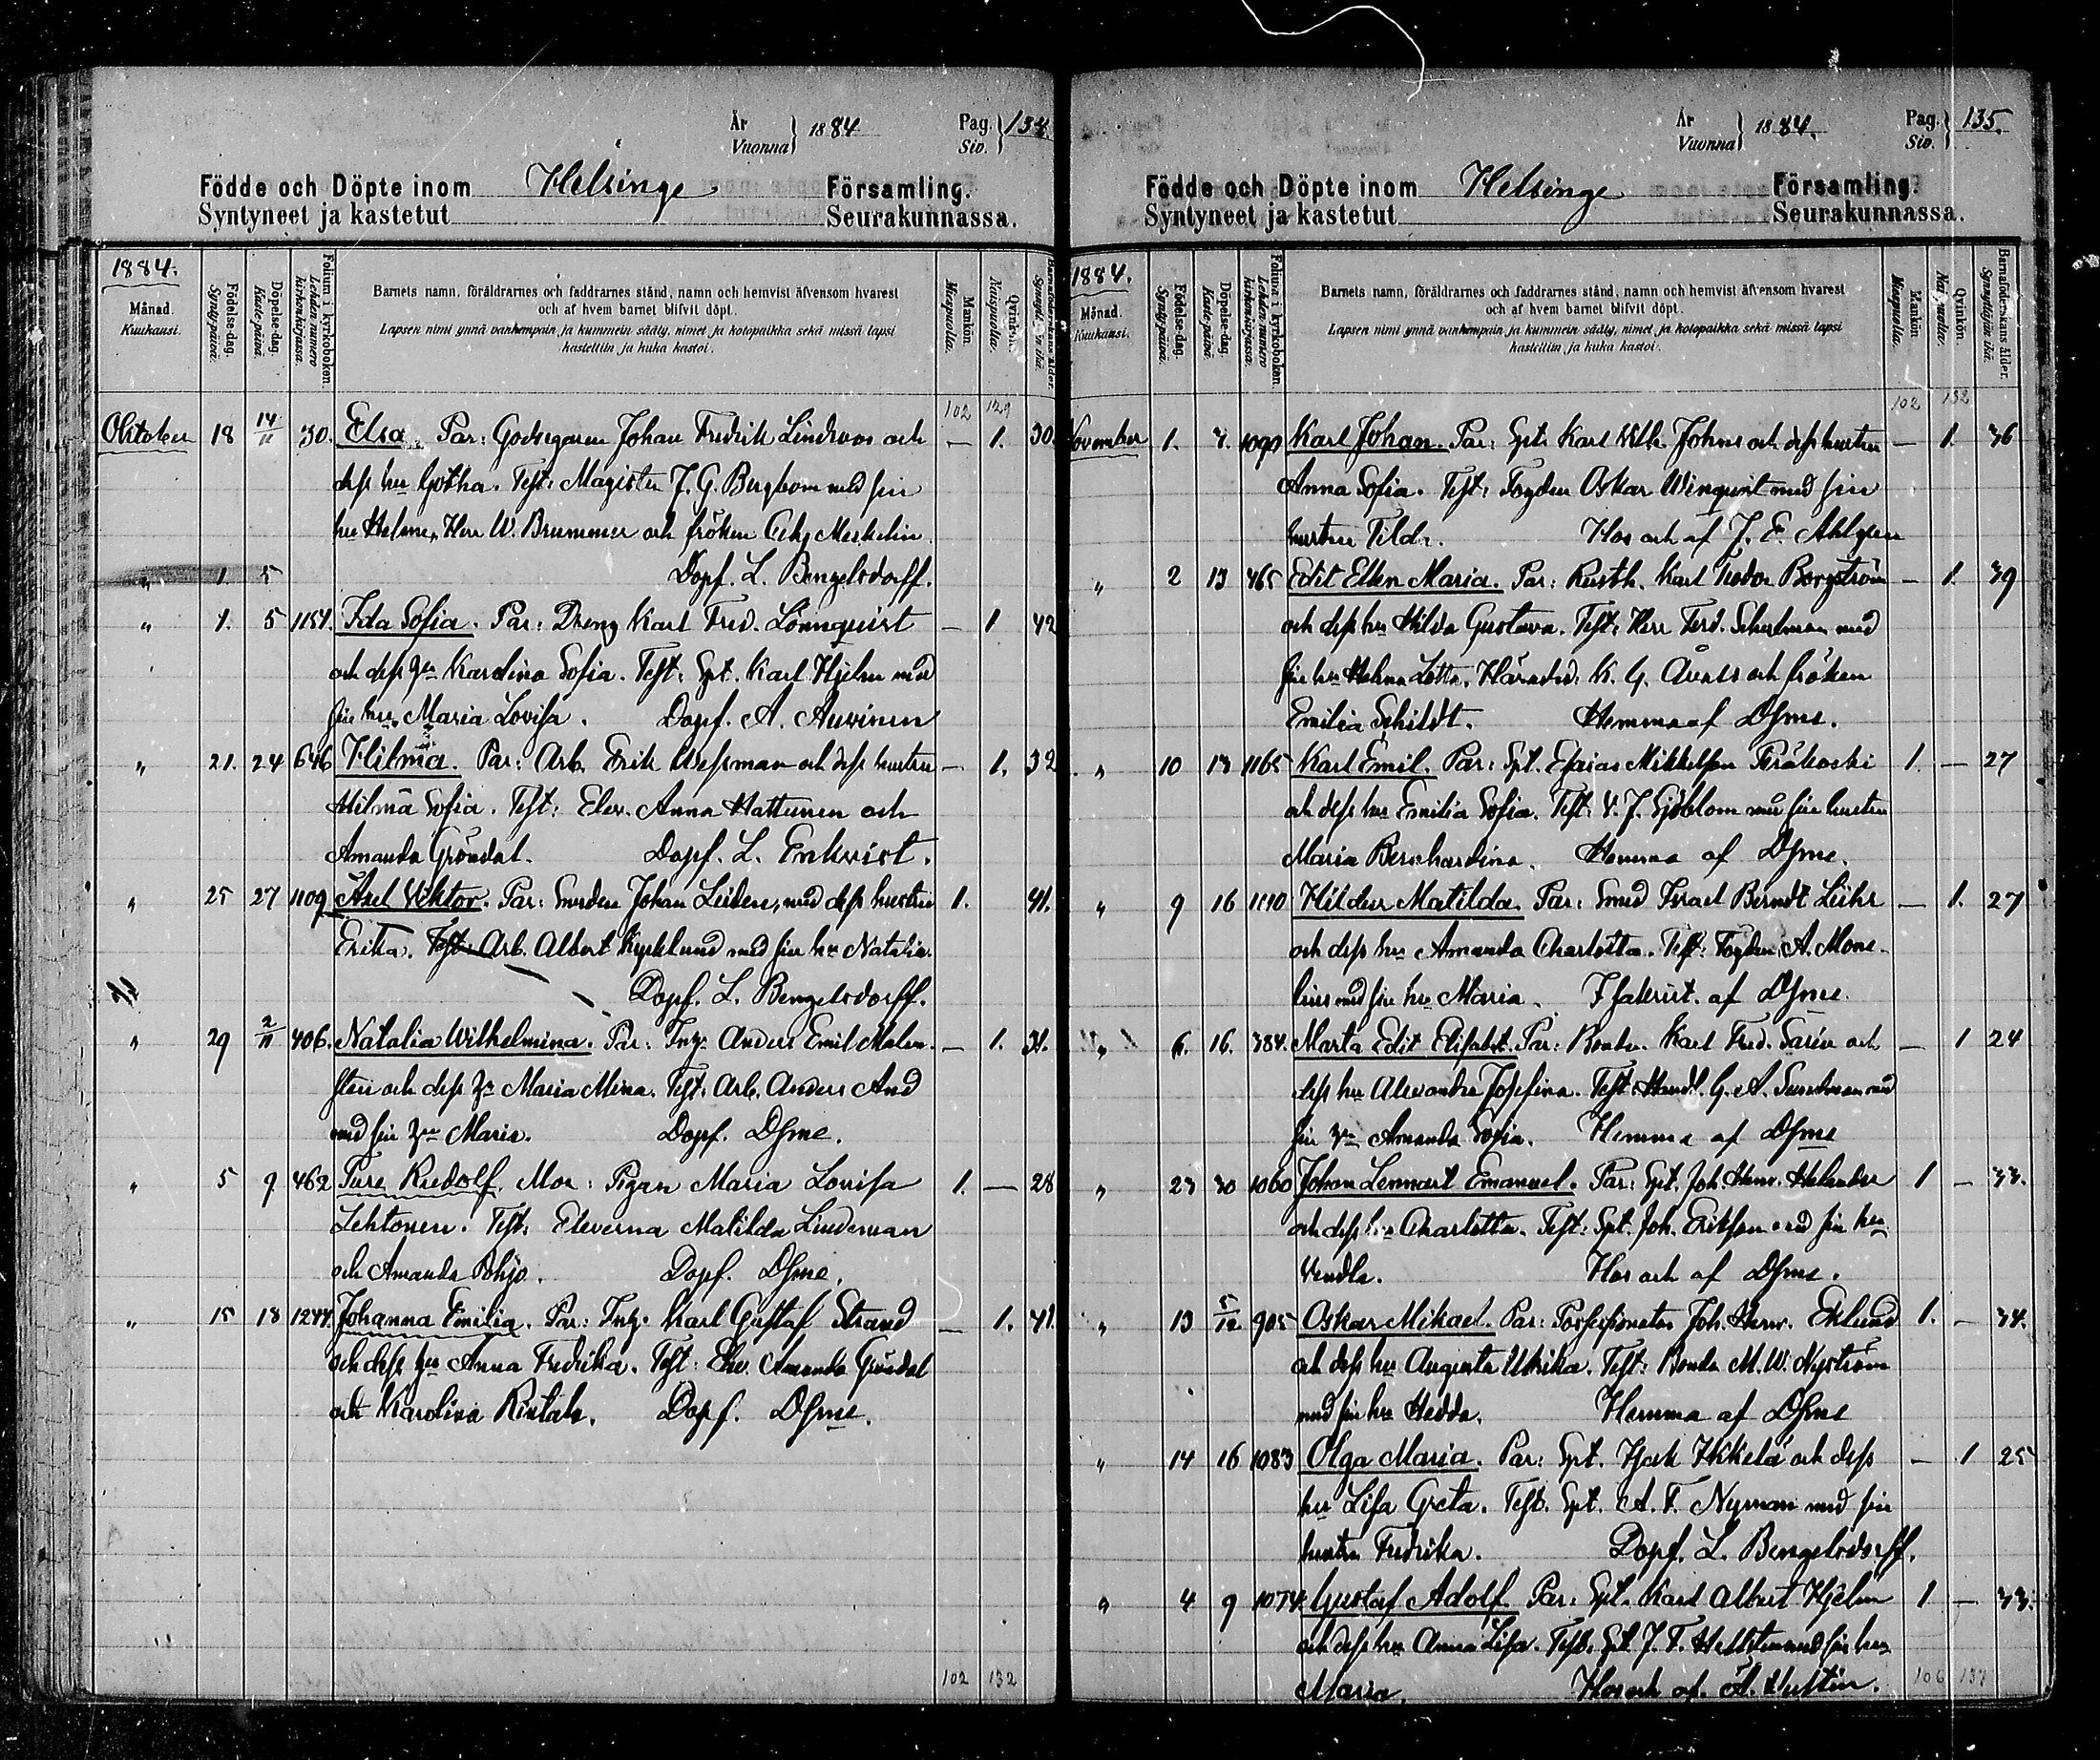 År
Vuonna } 1884
Pag.
Siv. } 134.
Födde och Döpte inom Helsinge Församling.
Syntyneet ja kastetut Seurakunnassa.
1884.
Månad.
Kuukausi.
Födelse-dag.
Synty-päivä.
Döpelse-dag.
Kaste-päivä.
Folium i kyrkoboken.
Lehden numero kirkonkirjassa.
Barnets namn, föräldrarnes och faddrarnes stånd, namn och hemvist äfvensom hvarest
och af hvem barnet blifvit döpt.
Lapsen nimi ynnä vanhempain ja kummein sääty, nimet ja kotopaikka sekä missä lapsi
kastettiin ja kuka kastoi.
Mankön.
Miespuolia.
Qvinkön.
Naispuolia.
Barnaföderskans ålder.
Synnyttäjän ikä.
102 129
Oktober 18 14/11 30. Elsa. Par: Godsegaren Johan Fredrik Lindroos och — 1. 30.
dess hu Gotha. Test: Magister J. G. Bergbom med sin
hu Helene, Herr W. Brummer och fröken Mechelin.
" 1. 5 Döpf. L. Bengelsdorff.
" 1. 5 1154. Ida Sofia. Par: Dreng Karl Fred. Lönnquist — 1 42
och dess hu Karolina Sofia. Test: Spt. Karl Hjelm med
sin hu Maria Lovisa. Döpf. A. Auvinen
" 21. 24 646 Hilma. Par: Arb. Erik Wessman och dess hustru — 1. 32
Hilma Sofia. Test: Elev. Anna Hattunen och
Amanda Gröndal. Döpf. L. Enkvist.
" 25 27 1109 Axel Viktor. Par: Smeden Johan Linden, med dess hustru 1. 41.
Erika. Test: Arb. Albert Kyrklund med sin hu Natalia.
Döpf. L. Bengelsdorff.
" 29 2/11 406. Natalia Wilhelmina. Par: Inh. Anders Emil Malm- — 1. 31.
sten och dess hu Maria Mina. Test: Arb. Anders And
med sin hu Maria. Döpf. Dsme.
" 5 9 462 Ture Rudolf. Mor: Pigan Maria Lovisa 1. — 28
Lehtonen. Test: Eleverna Matilda Lindeman
och Amanda Pohjo. Döpf. Dsme.
" 15 18 1244. Johanna Emilia. Par: Inh. Karl Gustaf Strand — 1. 41.
och dess hu Anna Fredrika. Test: Elev. Amanda Gröndal
och Karolina Rintala. Döpf. Dsme.
102 132
År
Vuonna } 1884.
Pag.
Siv. } 135.
Födde och Döpte inom Helsinge Församling.
Syntyneet ja kastetut Seurakunnassa.
1884.
Månad.
Kuukausi.
Födelse-dag.
Synty-päivä.
Döpelse-dag.
Kaste-päivä.
Folium i kyrkoboken.
Lehden numero kirkonkirjassa.
Barnets namn, föräldrarnes och faddrarnes stånd, namn och hemvist äfvensom hvarest
och af hvem barnet blifvit döpt.
Lapsen nimi ynnä vanhempain ja kummein sääty, nimet ja kotopaikka sekä missä lapsi
kastettiin ja kuka kastoi.
Mankön
Miespuolia.
Qvinkön.
Naispuolia.
Barnaföderskans ålder.
Synnyttäjän ikä.
102 132
November 1. 7. 1090 Karl Johan. Par: Spt. Karl Wilh. Johns och dess hustru — 1. 36
Anna Sofia. Test: Fogden Oskar Winqvist med sin
hustru Tilda. Hos och af J. E. Ahlgren
" 2 13 465 Edit Ellen Maria. Par: Rusth. Karl Teodor Borgström — 1. 39
och dess hu Hilda Gustava. Test: Herr Ferd. Schulman med
sin hu Helena Lotta, Häradsd. K. G. och fröken
Emilia Schildt. Hemma af Dsme.
" 10 13 1165 Karl Emil. Par: Spt. Esaias Mikkelson Peräkoski 1. — 27
och dess hu Emilia Sofia. Test: V. J. Sjöblom med sin hustru
Maria Bernhardina. Hemma af Dsme.
" 9 16 1110 Hildur Matilda. Par: Smed Israel Berndt Lühr — 1. 27
och dess hu Amanda Charlotta. Test: Fogden A. Mone-
lius med sin hu Maria. I sakrist. af Dsme.
" 6. 16. 384. Marta Edit Elisabet. Par: Bonden Karl Fred. Sarén och — 1 24
dess hu Alexandra Josefina. Test: Handl. G. A. Sundman med
sin hu Amanda Sofia. Hemma af Dsme
" 23 30 1060 Johan Lennart Emanuel. Par: Spt. Joh. Henr. Helander 1 — 33.
och dess hu Charlotta. Test: Spt. Joh. Eriksson med sin hu
Vendla. Hos och af Dsme.
" 13 5/12 905 Oskar Mikael. Par: Possessionaten Joh. Henr. Eklund 1. — 34.
och dess hu Augusta Ulrika. Test: Bonden M. W. Nyström
med sin hu Hedda. Hemma af Dsme
" 14 16 1083 Olga Maria. Par: Spt. Isak Ikkelä och dess — 1 25
hu Lisa Greta. Test. Spt. A. F. Nyman med sin
hustru Fredrika. Döpf. L. Bengelsdorff.
" 4 9 1074. Gustaf Adolf. Par: Spt. Karl Albert Hjelm 1 — 33.
och dess hu Anna Lisa. Test: Spt. J. F. Hellsten med sin hu
Maria. Hos och af A. Huttin.
106 137